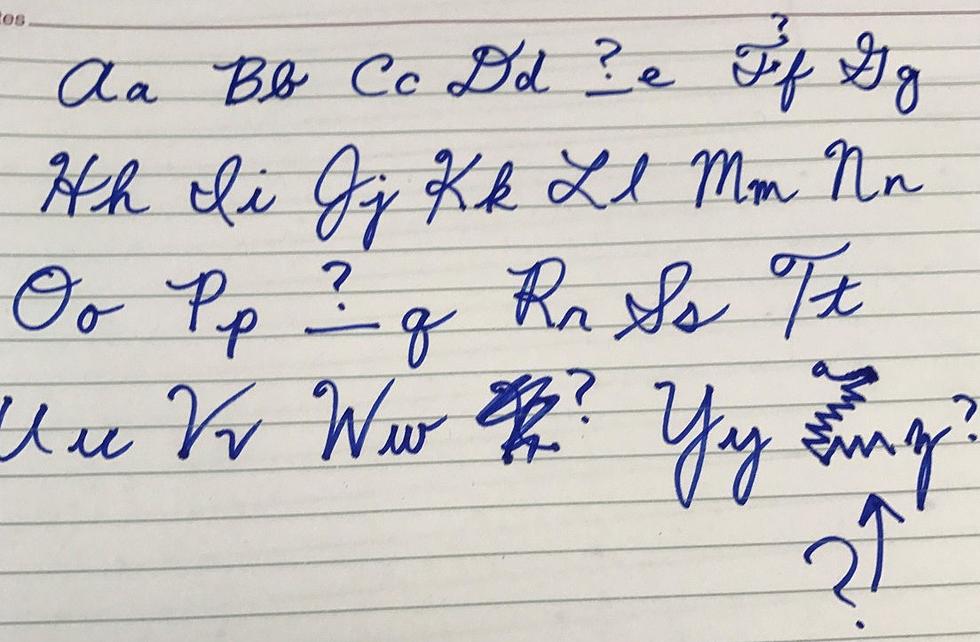 Aa Bb Cc Dd ? e ?
Ff Gg
Hh Ii Jj Kk Ll Mm Nn
Oo Pp ? q Rr Ss Tt
Uu Vv Ww ? Yy z ?
?